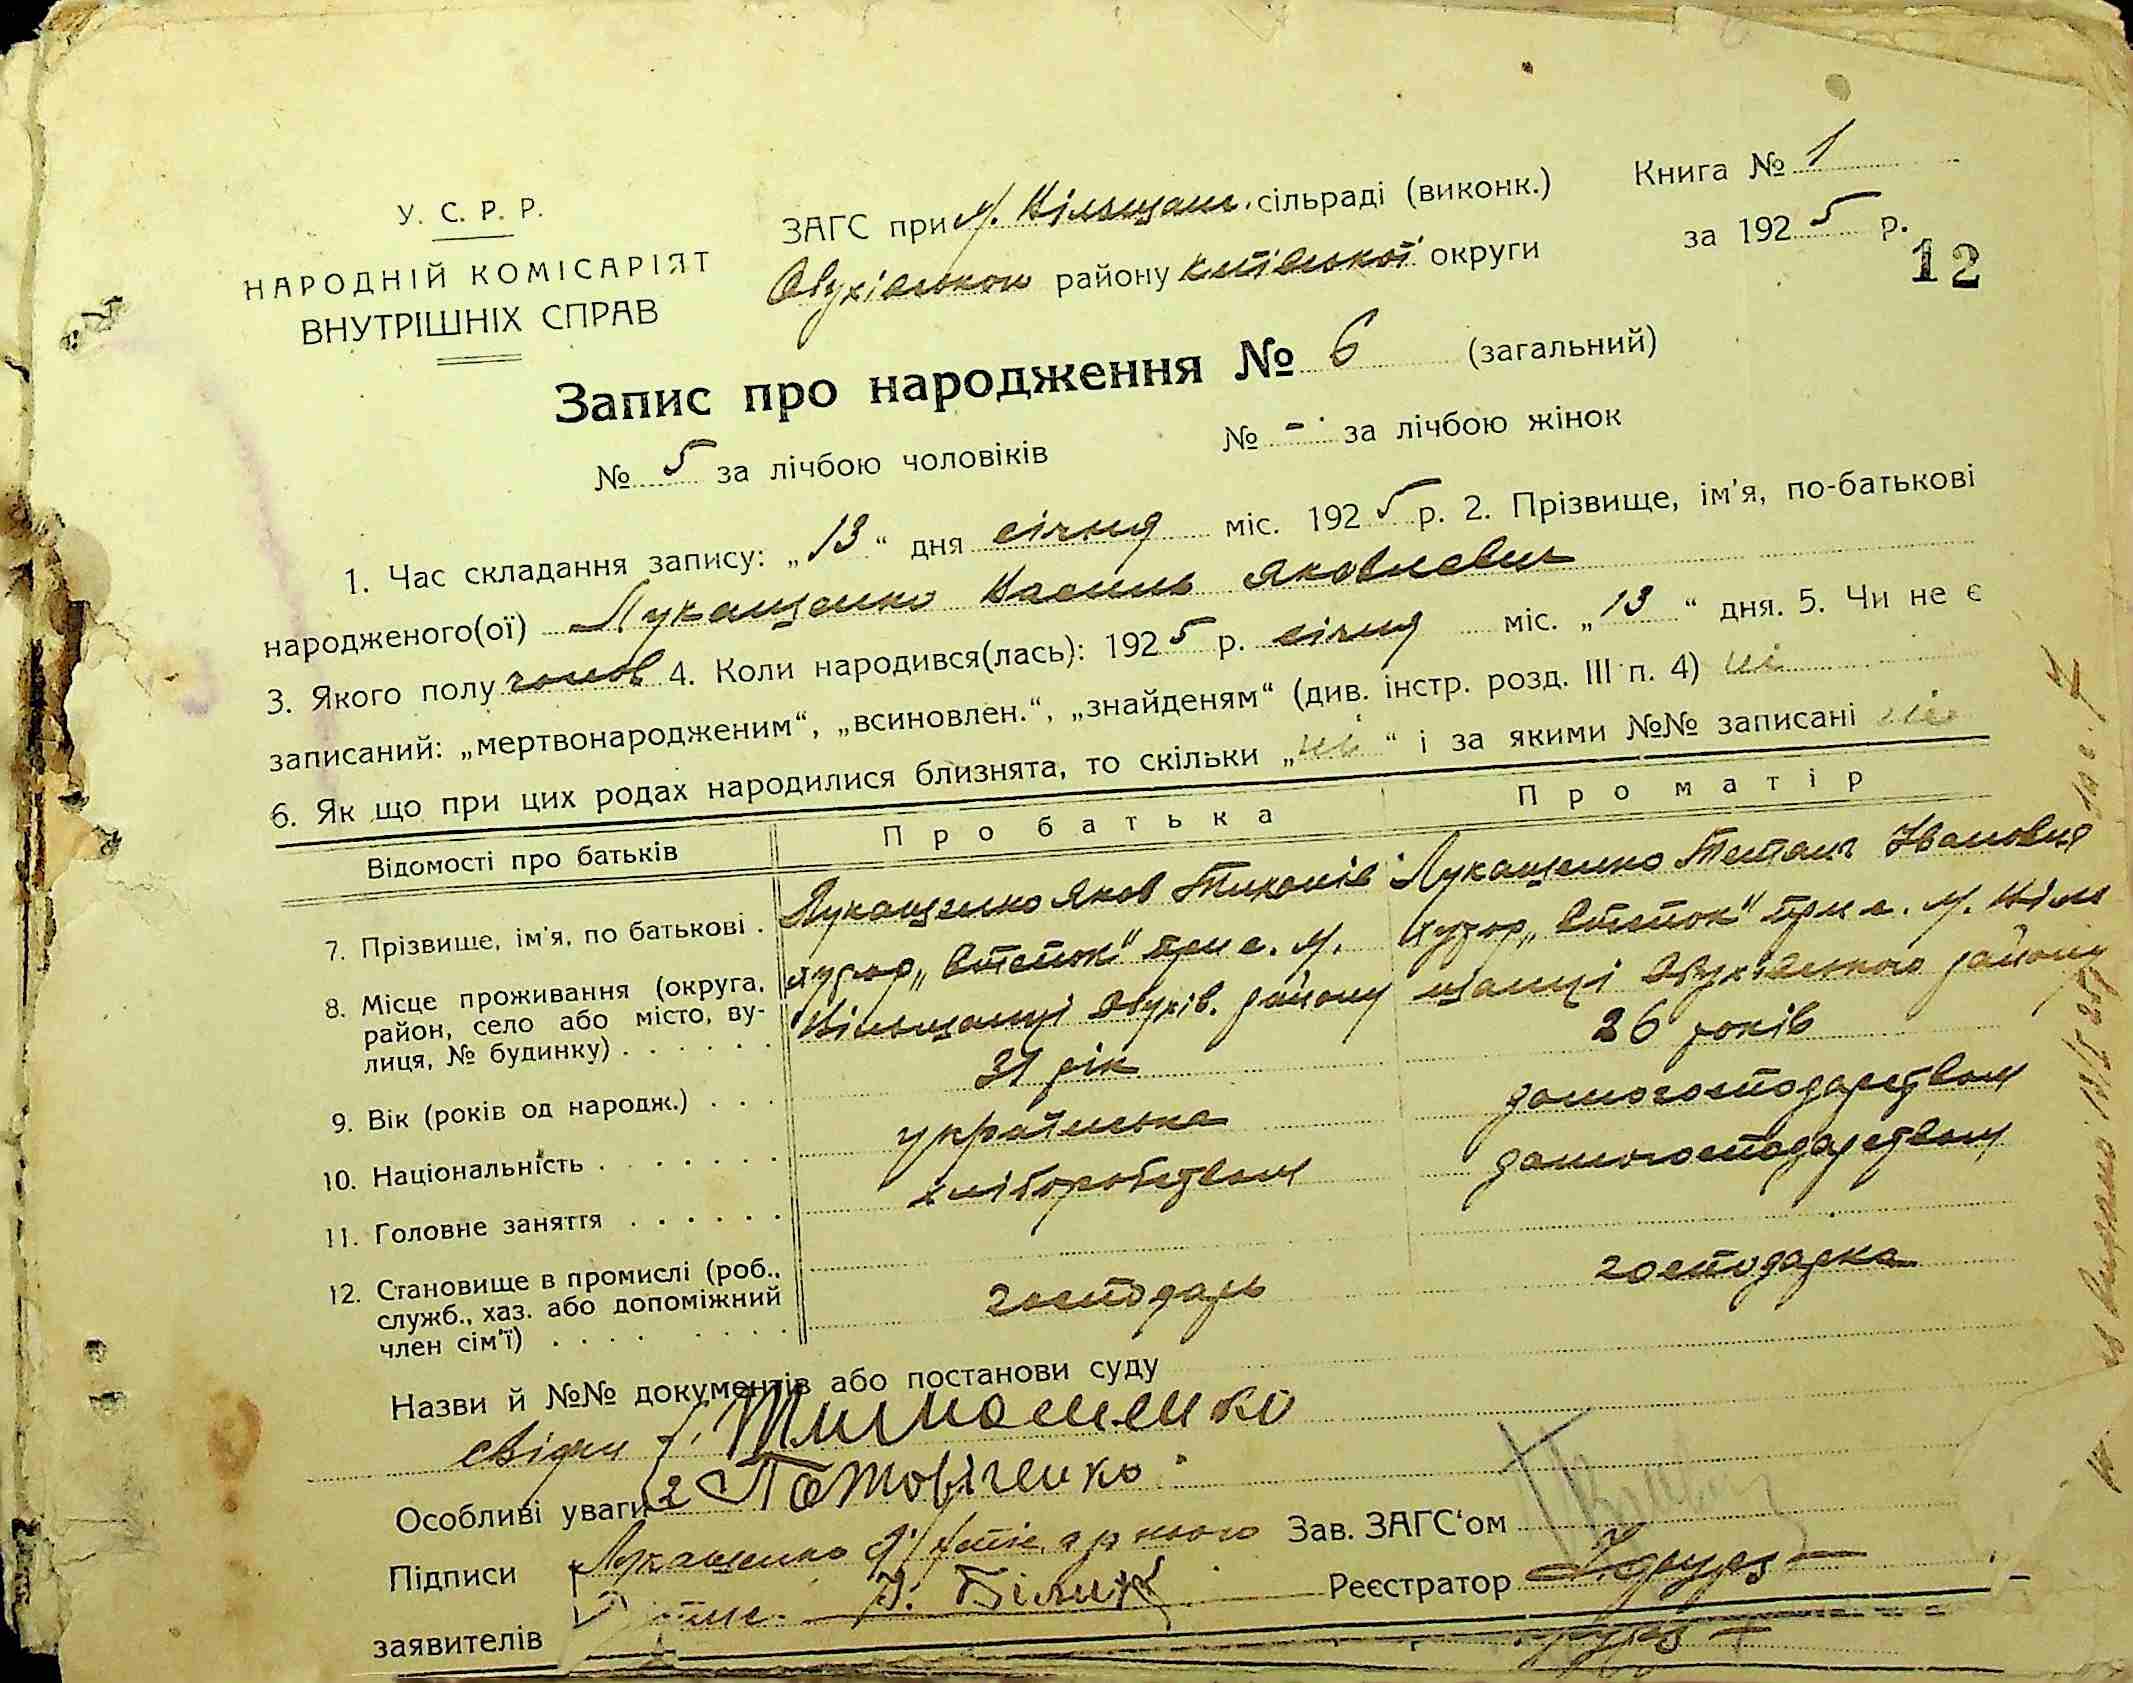 У. С. Р. Р.
НАРОДНІЙ КОМІСАРІЯТ
ВНУТРІШНІХ СПРАВ
ЗАГС при М. Вільшан. сільраді (виконк.)
району Київської округи
Книга № 1
за 1925 р.
12
Запис про народження № 6 (загальний)
№ 5 за лічбою чоловіків № - за лічбою жінок
1. Час складання запису: „13“ дня січня міс. 1925 р. 2. Прізвище, ім'я, по-батькові
народженого(ої) Лукащенко Василь Яковлевич
3. Якого полу чолов 4. Коли народився(лась): 1925 р. січня міс. „13“ дня. 5. Чи не є
записаний: „мертвонародженим“, „всиновлен.“, „знайденям“ (див. інстр. розд. III п. 4) ні
6. Як що при цих родах народилися близнята, то скільки „ні“ і за якими №№ записані ні
Відомості про батьків Про батька Про матір
7. Прізвище, ім'я, по батькові . Лукащенко Яков Тихонів Лукащенко Тетяна Івановна
8. Місце проживання (округа, район, село або місто, вулиця, № будинку) . . . . . .
хутор „Степок“ при с. М. Вільшанці Обухів. району
хутор „Степок“ при с. М. Вільшанці Обухівського району
9. Вік (років од народж.) . . . 31 рік 26 років
10. Національність . . . . . . . українська домогосподарством
11. Головне заняття . . . . . . хліборобством домогосподарством
12. Становище в промислі (роб., служб., хаз. або допоміжний член сім'ї) . . . . . . . .
господарь господарка
Назви й №№ документів або постанови суду
свідки 1. Тимошенко
Особливі уваги 2
Підписи Лукащенко Я. Зав. ЗАГС'ом
заявителів Білик Реєстратор